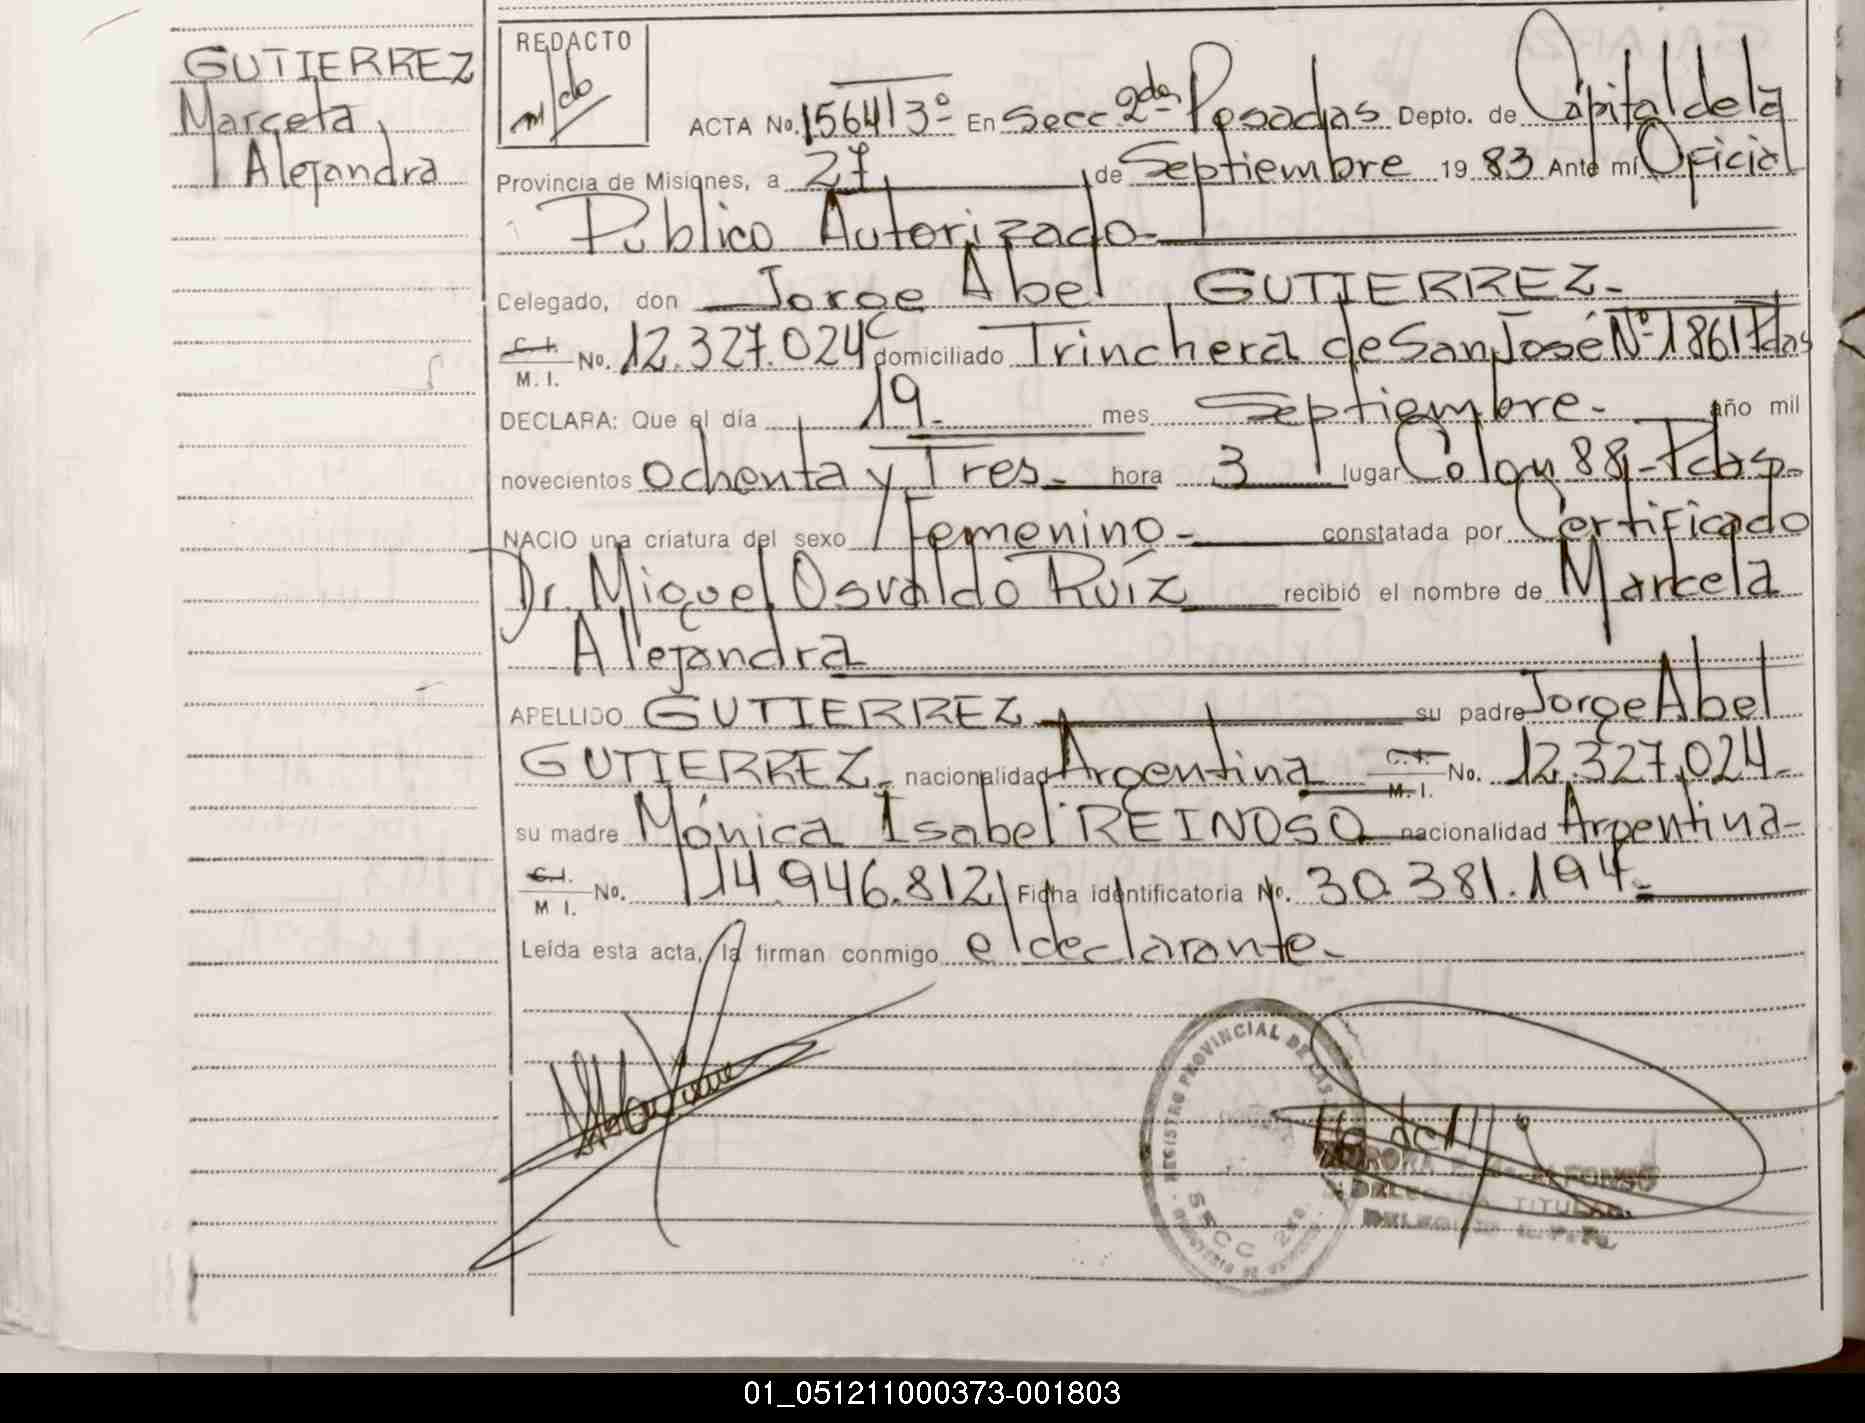 GUTIERREZ
Marcela
Alejandra
REDACTO
ACTA No. 1564 | 3º En Secc 2da Posadas Depto. de Capital de la
Provincia de Misiones, a 27 de Septiembre 19 83 Ante mí Oficial
Publico Autorizado-
Celegado, don Jorge Abel GUTIERREZ-
C.I. M.I. No. 12.327.024 domiciliado Trinchera de San José Nº 1861 Pdas
DECLARA: Que el día 19- mes Septiembre- año mil
novecientos ochenta y Tres- hora 3 lugar Colon 88-Pdas-
NACIO una criatura del sexo Femenino- constatada por Certificado
Dr. Miguel Osvaldo Ruíz recibió el nombre de Marcela
Alejandra
APELLIDO GUTIERREZ su padre Jorge Abel
GUTIERREZ- nacionalidad Argentina C.I. M.I. No. 12.327.024-
su madre Mónica Isabel REINOSO nacionalidad Argentina-
C.I. M I. No. 14.946.812 Ficha identificatoria No. 30.381.194-
Leída esta acta, la firman conmigo el declarante-
REGISTRO PROVINCIAL DE
SECC 2da
ALFONSO
TITULAR
01_051211000373-001803